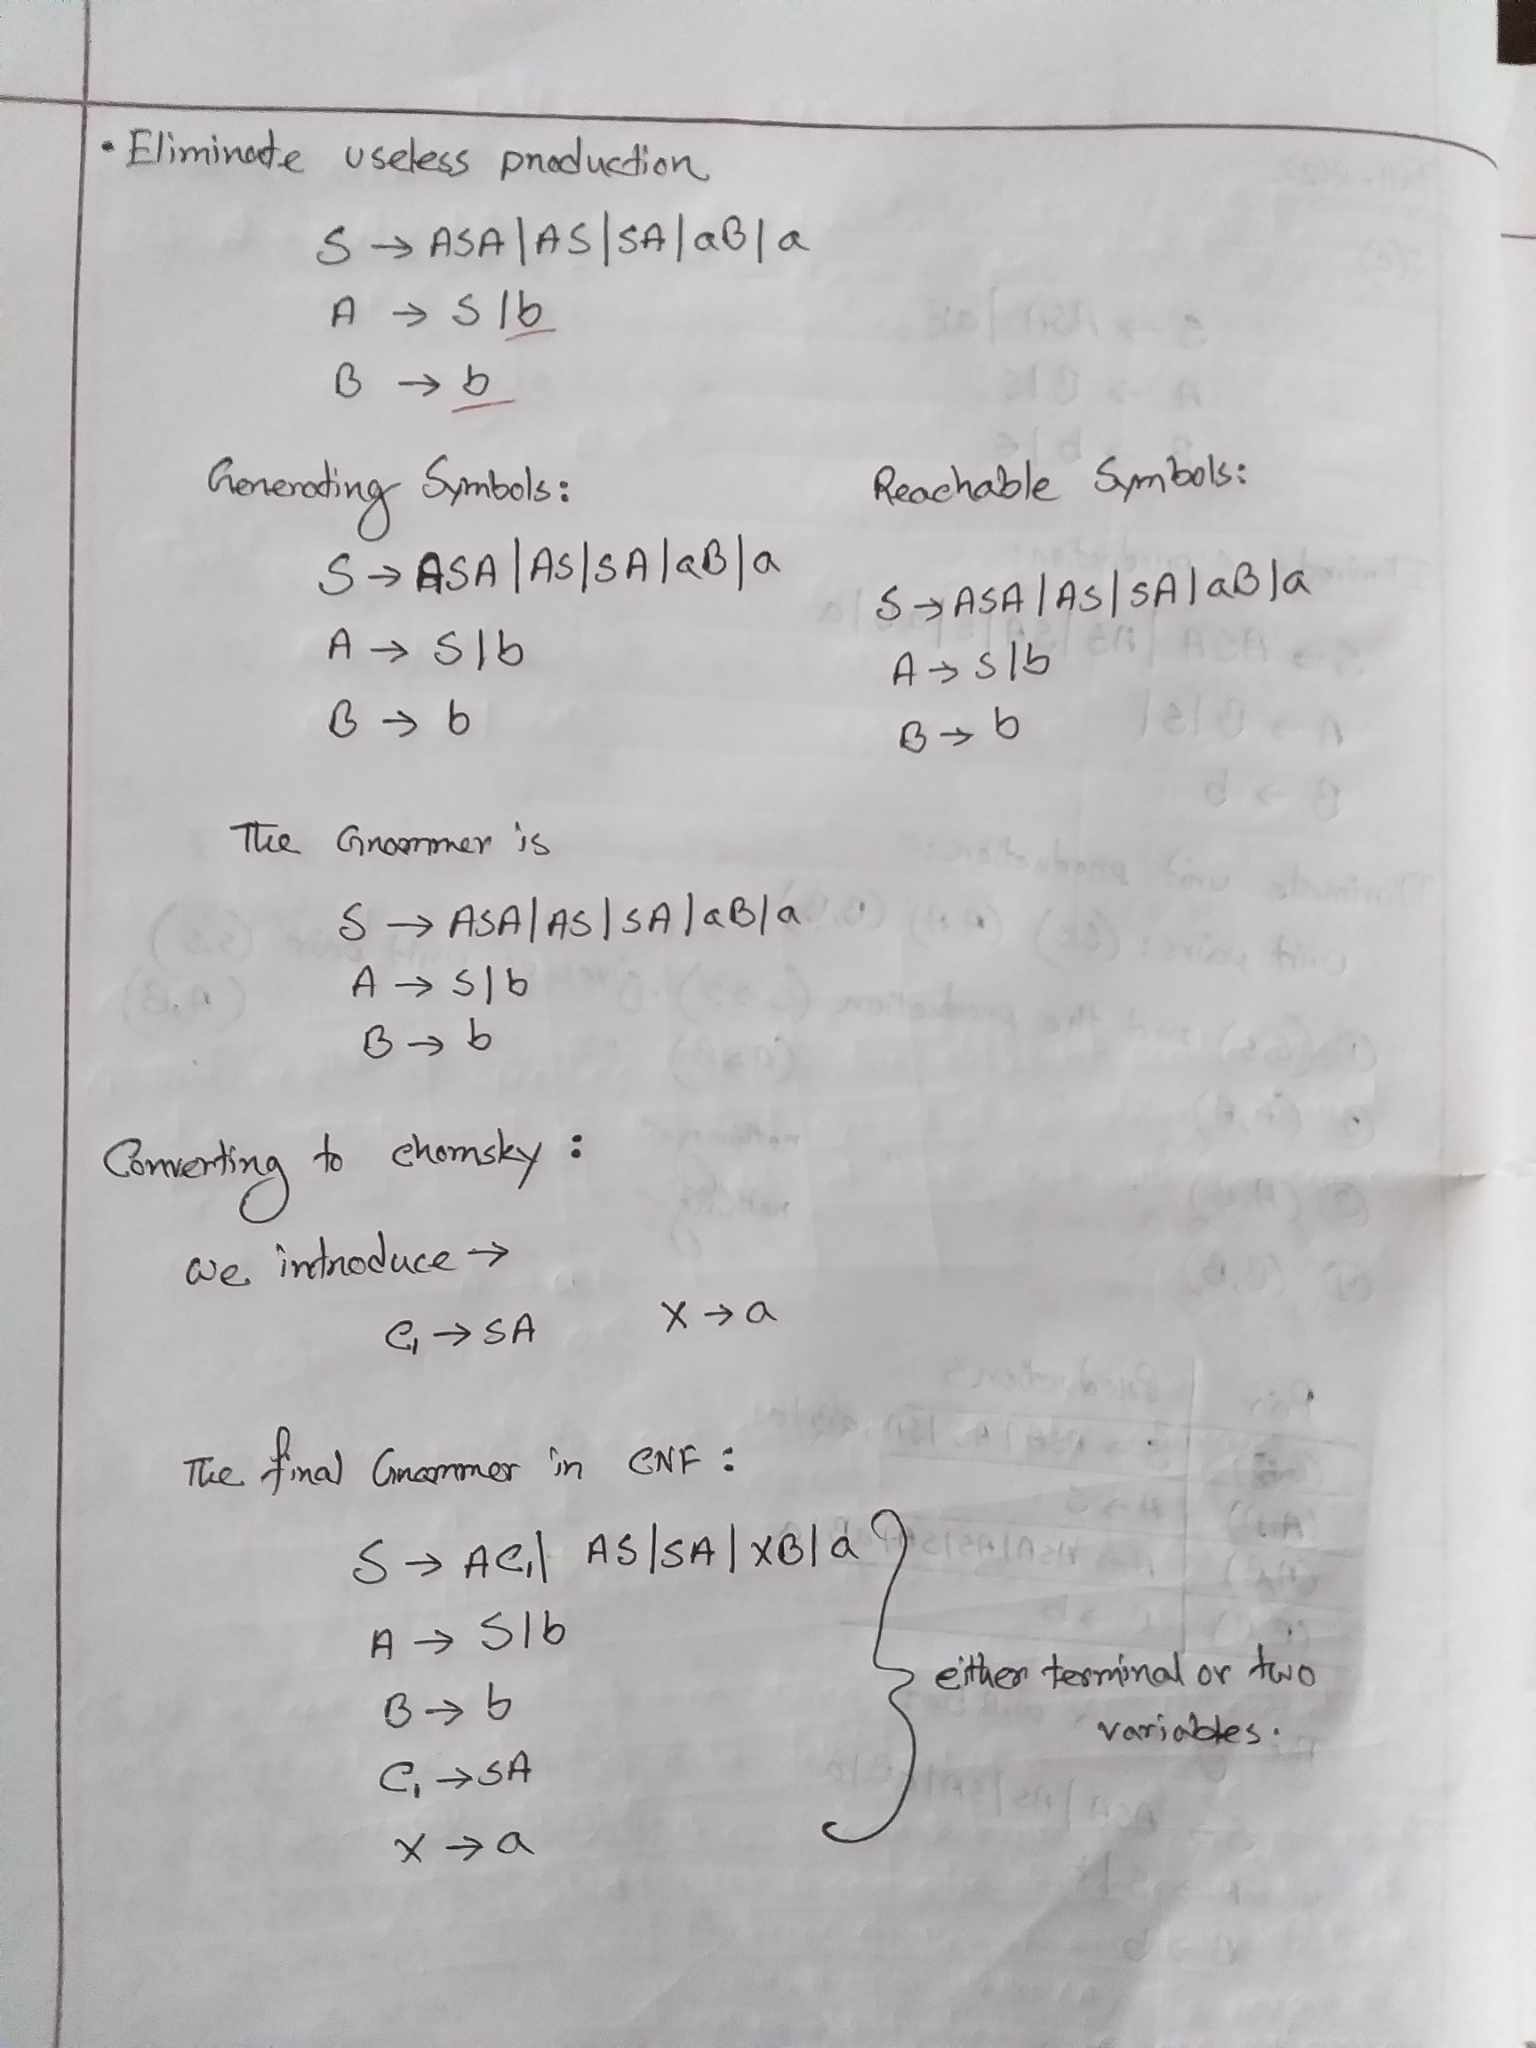 • Eliminate useless production
S → ASA | AS | SA | aB | a
A → S | b
B → b
Generating Symbols:
S → ASA | AS | SA | aB | a
A → S | b
B → b
Reachable Symbols:
S → ASA | AS | SA | aB | a
A → S | b
B → b
The Grammer is
S → ASA | AS | SA | aB | a
A → S | b
B → b
Converting to chomsky :
we introduce →
C₁ → SA X → a
The final Grammer in CNF :
S → AC₁ | AS | SA | XB | a
A → S | b
B → b
C₁ → SA
X → a
either terminal or two
variables.